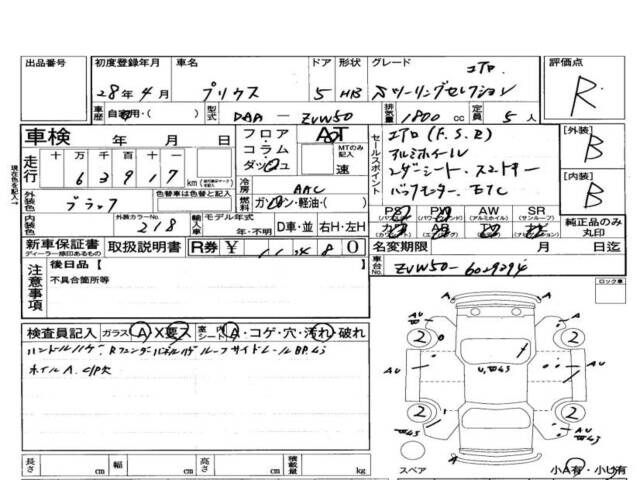 出品番号
初度登録年月 車名 ドア 形状 グレード 評価点
28年4月 プリウス 5 HB Sツーリングセレクション エアロ R
車歴 自家用・( ) 型式 DAA-ZVW50 排気量 1800 cc 定員 5 人
車検 年 月 日
フロア コラム ダッシュ AT MTのみ記入 速
セールスポイント
エアロ (F.S.R)
アルミホイール
レザーシート・スマートキー
バックモニター・ETC
[外装] B
[内装] B
現在色を記入→
走行 十 万 千 百 十
6 3 9 1 7 km
冷房 AAC
外装色 ブラック 色替車は色替色と記入
燃料 ガソリン・軽油・( )
内装色 外装カラーNo. 218
輸入車 モデル年式 年・不明 D車・並 右H・左H
PS PW (パワーウィンドウ) AW (アルミホイール) SR (サンルーフ)
純正品のみ丸印
新車保証書 ディーラー捺印あるもの 取扱説明書 R券 ¥ 0
名変期限 月 日迄
車台No. ZVW50-
注意事項
後日品【
不具合箇所等
ロック車
検査員記入 ガラス A X要入 室内 シート A・コゲ・穴・汚れ・破れ
ホイルA.
AU
A
2 2
2 2
AU
長さ cm 幅 cm 高さ cm 積載量 kg
スペア 小A有・小U有